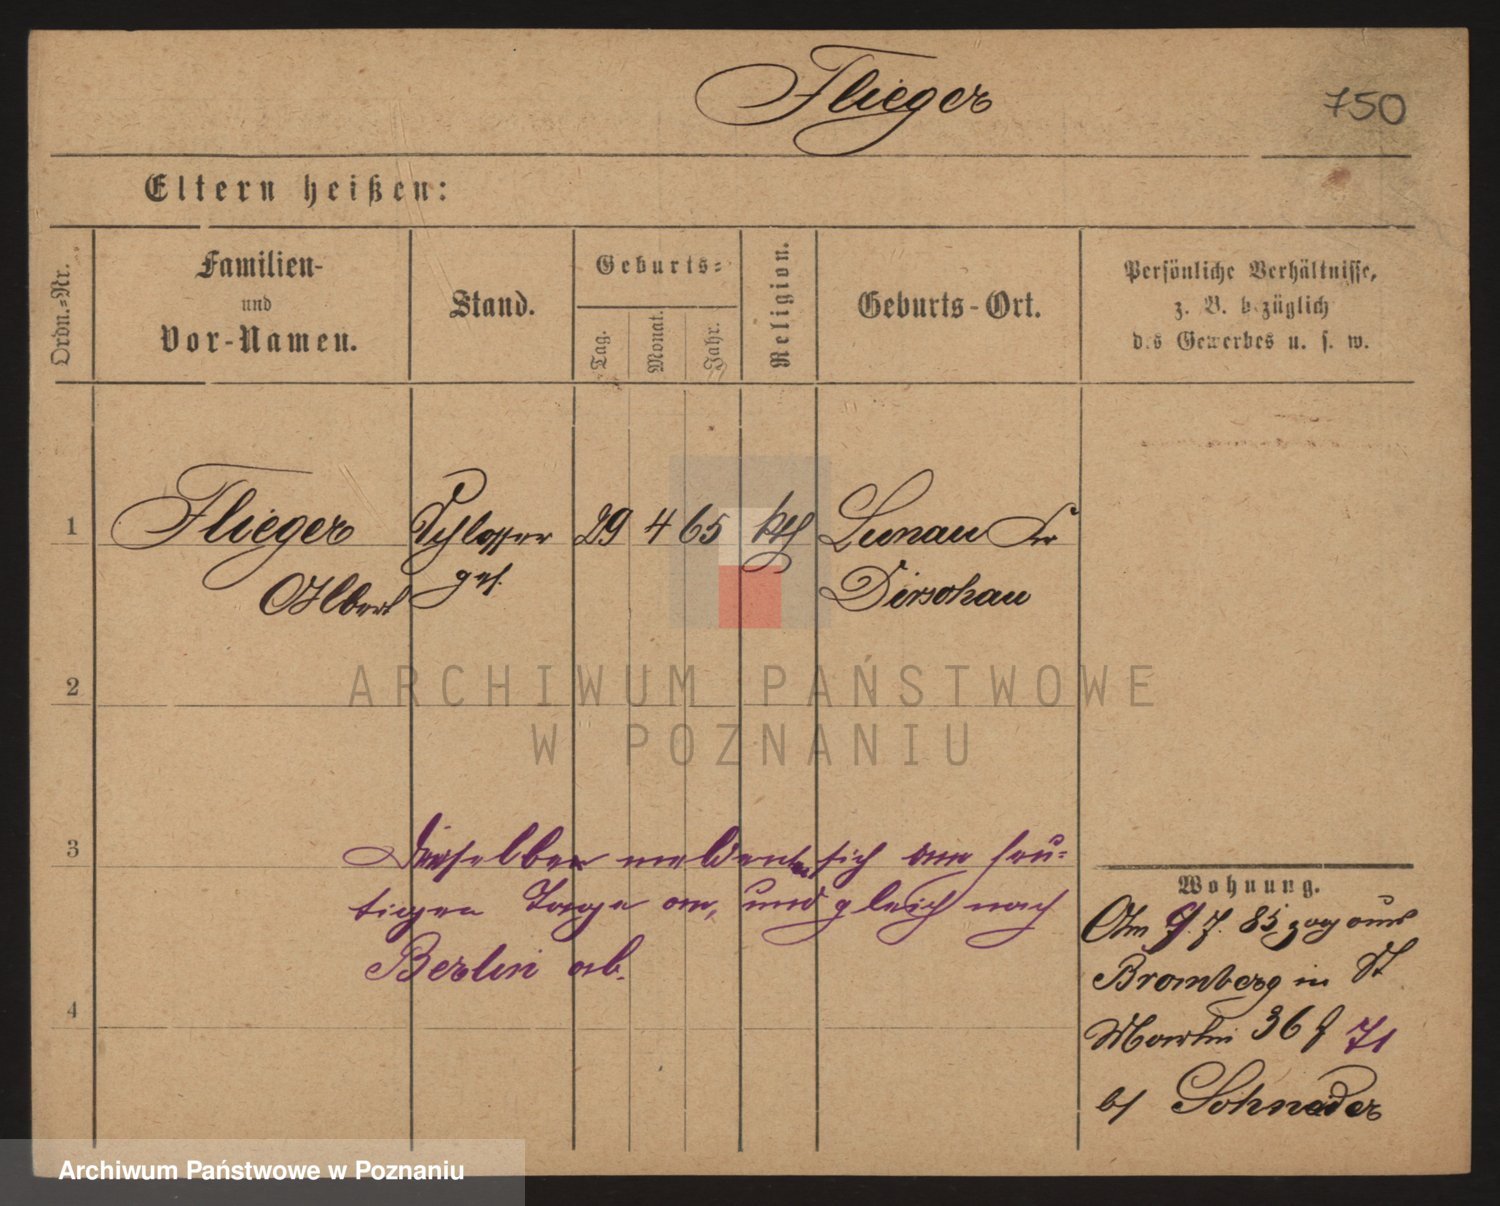 Flieger
750
Eltern heißen:
Ordn.-Nr.
Familien-
und
Vor-Namen.
Stand.
Geburts-
Tag.
Monat.
Jahr.
Religion.
Geburts-Ort.
Persönliche Verhältnisse,
z. B. bezüglich
des Gewerbes u. s. w.
1
Flieger
Albert
Schlosser
ges.
29
4
65
kth
Lunau Kr
Dirschau
2
3
Derselbe meldete sich am heu-
tigen Tage an, und gleich nach
Berlin ab.
4
Wohnung.
Am 9.7.85 zog aus
Bromberg in St
Martin 36 71
b/ Schneider
ARCHIWUM PAŃSTWOWE
W POZNANIU
Archiwum Państwowe w Poznaniu